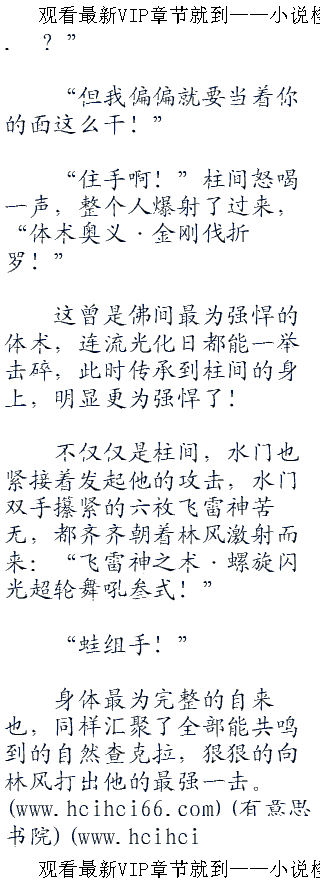 观看最新VIP章节就到——小说楼
．？”
“但我偏偏就要当着你
的面这么干！”
“住手啊！”柱间怒喝
一声，整个人爆射了过来，
“体术奥义·金刚伐折
罗！”
这曾是佛间最为强悍的
体术，连流光化日都能一举
击碎，此时传承到柱间的身
上，明显更为强悍了！
不仅仅是柱间，水门也
紧接着发起他的攻击，水门
双手攥紧的六枚飞雷神苦
无，都齐齐朝着林风激射而
来：“飞雷神之术·螺旋闪
光超轮舞吼叁式！”
“蛙组手！”
身体最为完整的自来
也，同样汇聚了全部能共鸣
到的自然查克拉，狠狠的向
林风打出他的最强一击。
(www.hcihci66.com)(有意思
书院)(www.hcihci
观看最新VIP章节就到——小说楼